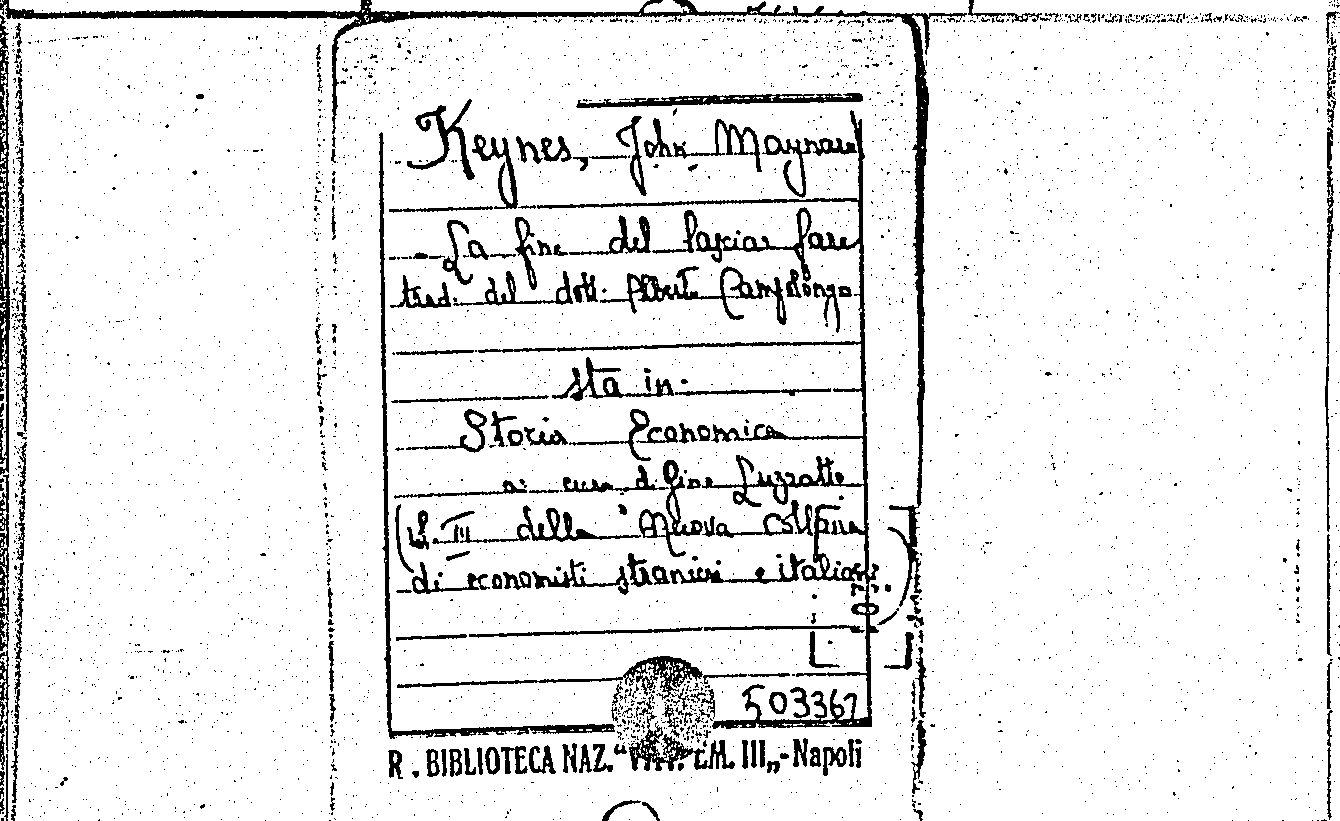 Keynes, John Maynard
La fine del lasciar fare
trad. del dott. Alberto Campolongo
sta in.
Storia Economica
a cura di Gino Luzzatto
(vol. III della "Nuova Collana
di economisti stranieri e italiani")
503367
R. BIBLIOTECA NAZ. "VITT. EM. III„-Napoli